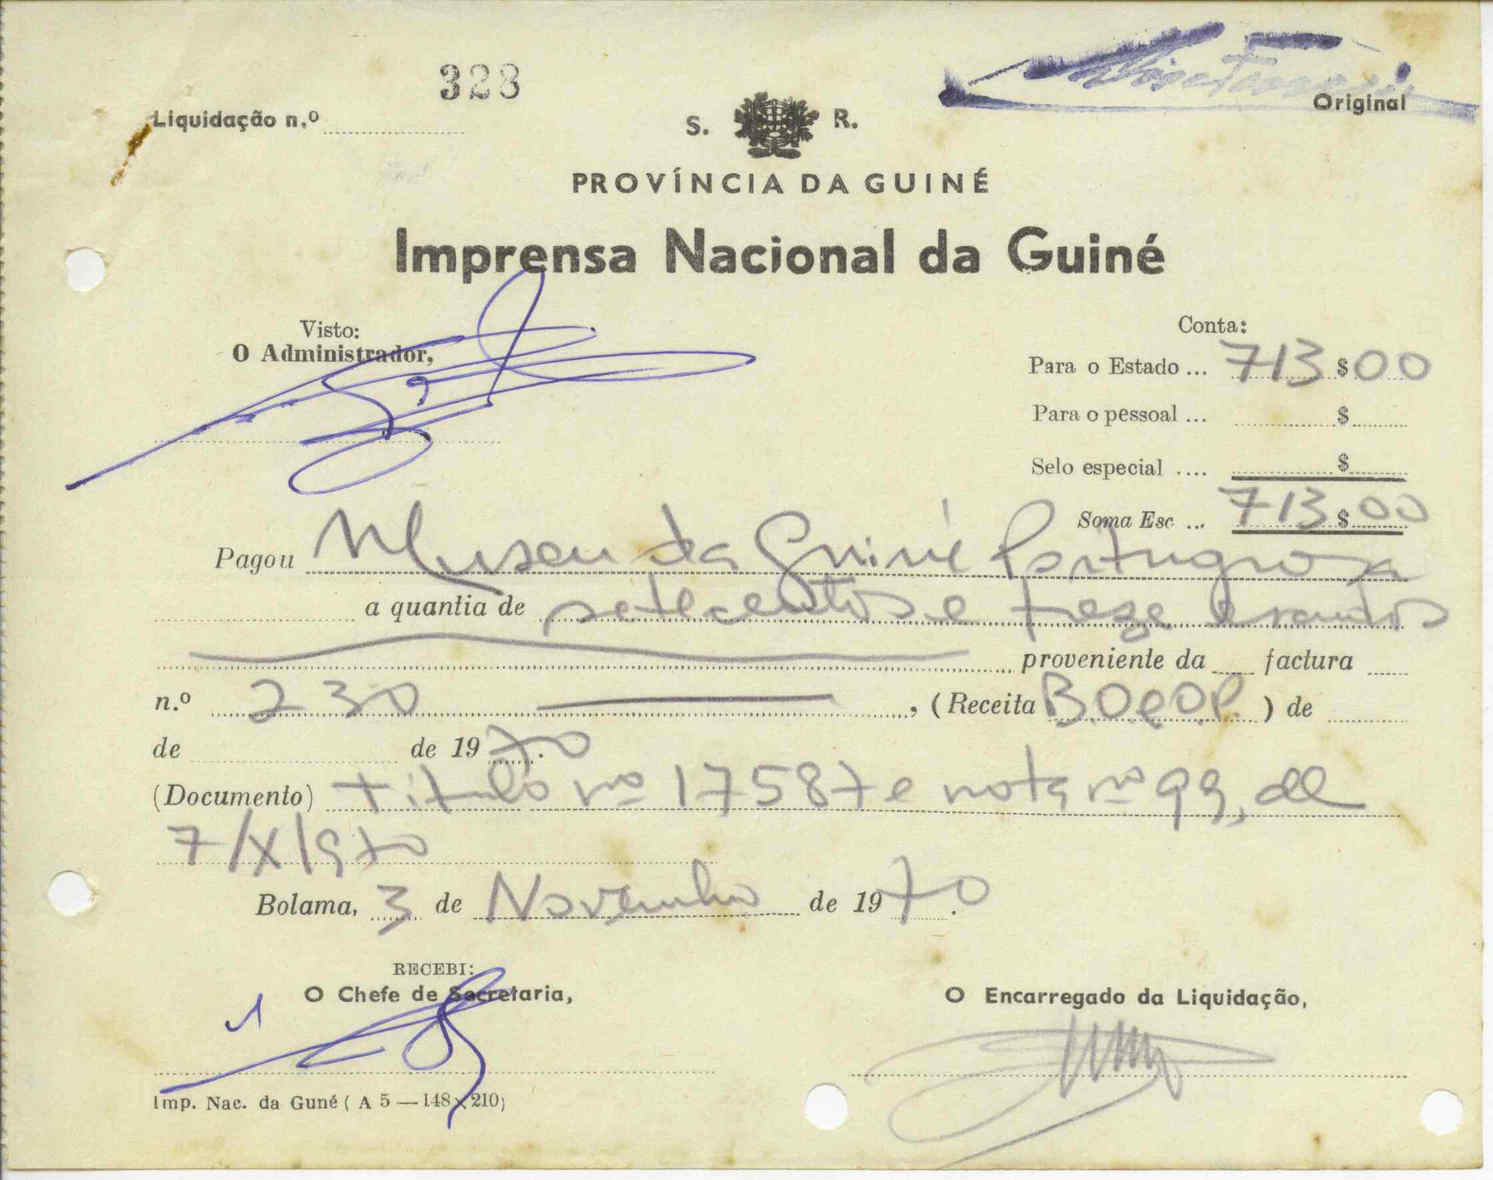 328
Liquidação n.º
Original
S. R.
PROVÍNCIA DA GUINÉ
Imprensa Nacional da Guiné
Visto:
O Administrador,
Conta:
Para o Estado ... 713$00
Para o pessoal ... $
Selo especial .... $
Soma Esc ... 713$00
Pagou Museu da Guiné Portuguesa
a quantia de setecentos e treze escudos
proveniente da factura
n.º 230 , (Receita B.O e O.P. ) de
de de 1970.
(Documento) titulo nº 17587 e nota nº 99, de
7/X/970
Bolama, 3 de Novembro de 1970.
RECEBI:
O Chefe de Secretaria,
O Encarregado da Liquidação,
Imp. Nac. da Guné ( A 5 — 148 x 210)